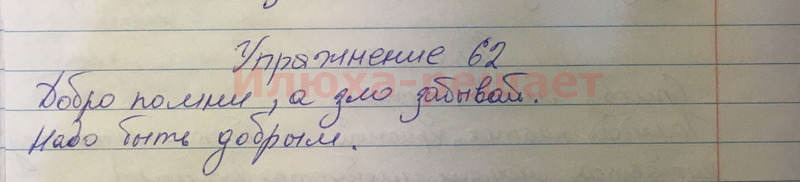 Упражнение 62
Илюха-решает
Добро помни, а зло забывай.
Надо быть добрым.